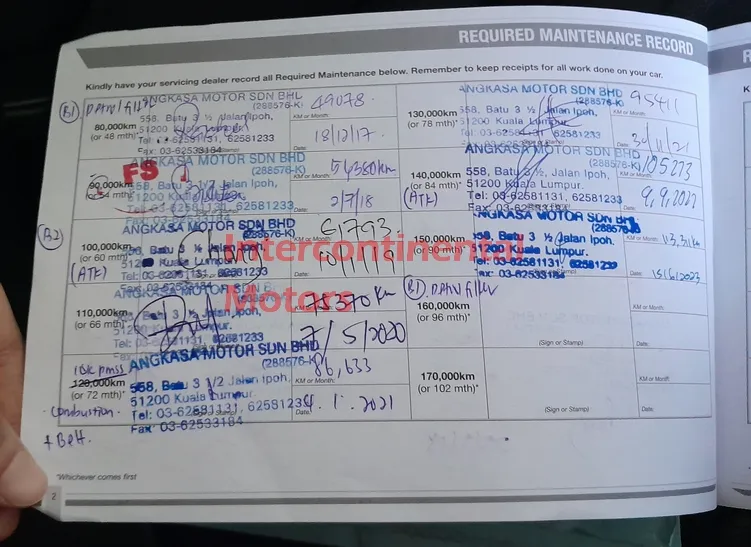 REQUIRED MAINTENANCE RECORD
Kindly have your servicing dealer record all Required Maintenance below. Remember to keep receipts for all work done on your car.
B1
80,000km
(or 48 mth)*
ANGKASA MOTOR SDN BHD
(288576-K)
558, Batu 3 ½ Jalan Ipoh,
51200 Kuala Lumpur
Tel: 03-62581131, 62581233
Fax: 03-62533184
KM or Month:
49078
18/12/17
FS
90,000km
(or 54 mth)*
ANGKASA MOTOR SDN BHD
(288576-K)
558, Batu 3 1/2 Jalan Ipoh,
51200 Kuala Lumpur
Tel: 03-62581131, 62581233
KM or Month:
54380km
2/7/18
B2
100,000km
(or 60 mth)*
(ATF)
ANGKASA MOTOR SDN BHD
(288576-K)
558, Batu 3 ½ Jalan Ipoh,
51200 Kuala Lumpur
Tel: 03-62581131, 62581233
61793
110,000km
(or 66 mth)*
ANGKASA MOTOR SDN BHD
558, Batu 3 ½ Jalan Ipoh,
51200 Kuala Lumpur.
Tel: 03-62581131, 62581233
75370km
7/5/2020
120,000km
(or 72 mth)*
Combustion
+ Belt.
ANGKASA MOTOR SDN BHD
(288576-K)
558, Batu 3 1/2 Jalan Ipoh,
51200 Kuala Lumpur.
Tel: 03-62581131, 62581233
Fax: 03-62533184
KM or Month:
86,633
4.1.2021
130,000km
(or 78 mth)*
ANGKASA MOTOR SDN BHD
(288576-K)
558, Batu 3 ½ Jalan Ipoh,
51200 Kuala Lumpur
Tel: 03-62581131, 62581233
Fax: 03-62533184
KM or Month:
95411
140,000km
(or 84 mth)*
(ATF)
ANGKASA MOTOR SDN BHD
(288576-K)
558, Batu 3 ½, Jalan Ipoh,
51200 Kuala Lumpur.
Tel: 03-62581131, 62581233
Fax: 03-62533184
KM or Month:
105273
Date:
9.9.2022
150,000km
(or 90 mth)*
ANGKASA MOTOR SDN BHD
(288576-K)
558, Batu 3 ½ Jalan Ipoh,
51200 Kuala Lumpur.
Tel: 03-62581131, 62581233
Fax: 03-62533184
Date:
15/6/2023
B1
160,000km
(or 96 mth)*
(Sign or Stamp)
KM or Month:
Date:
170,000km
(or 102 mth)*
(Sign or Stamp)
KM or Month:
Date:
*Whichever comes first
2
Intercontinental
Motors